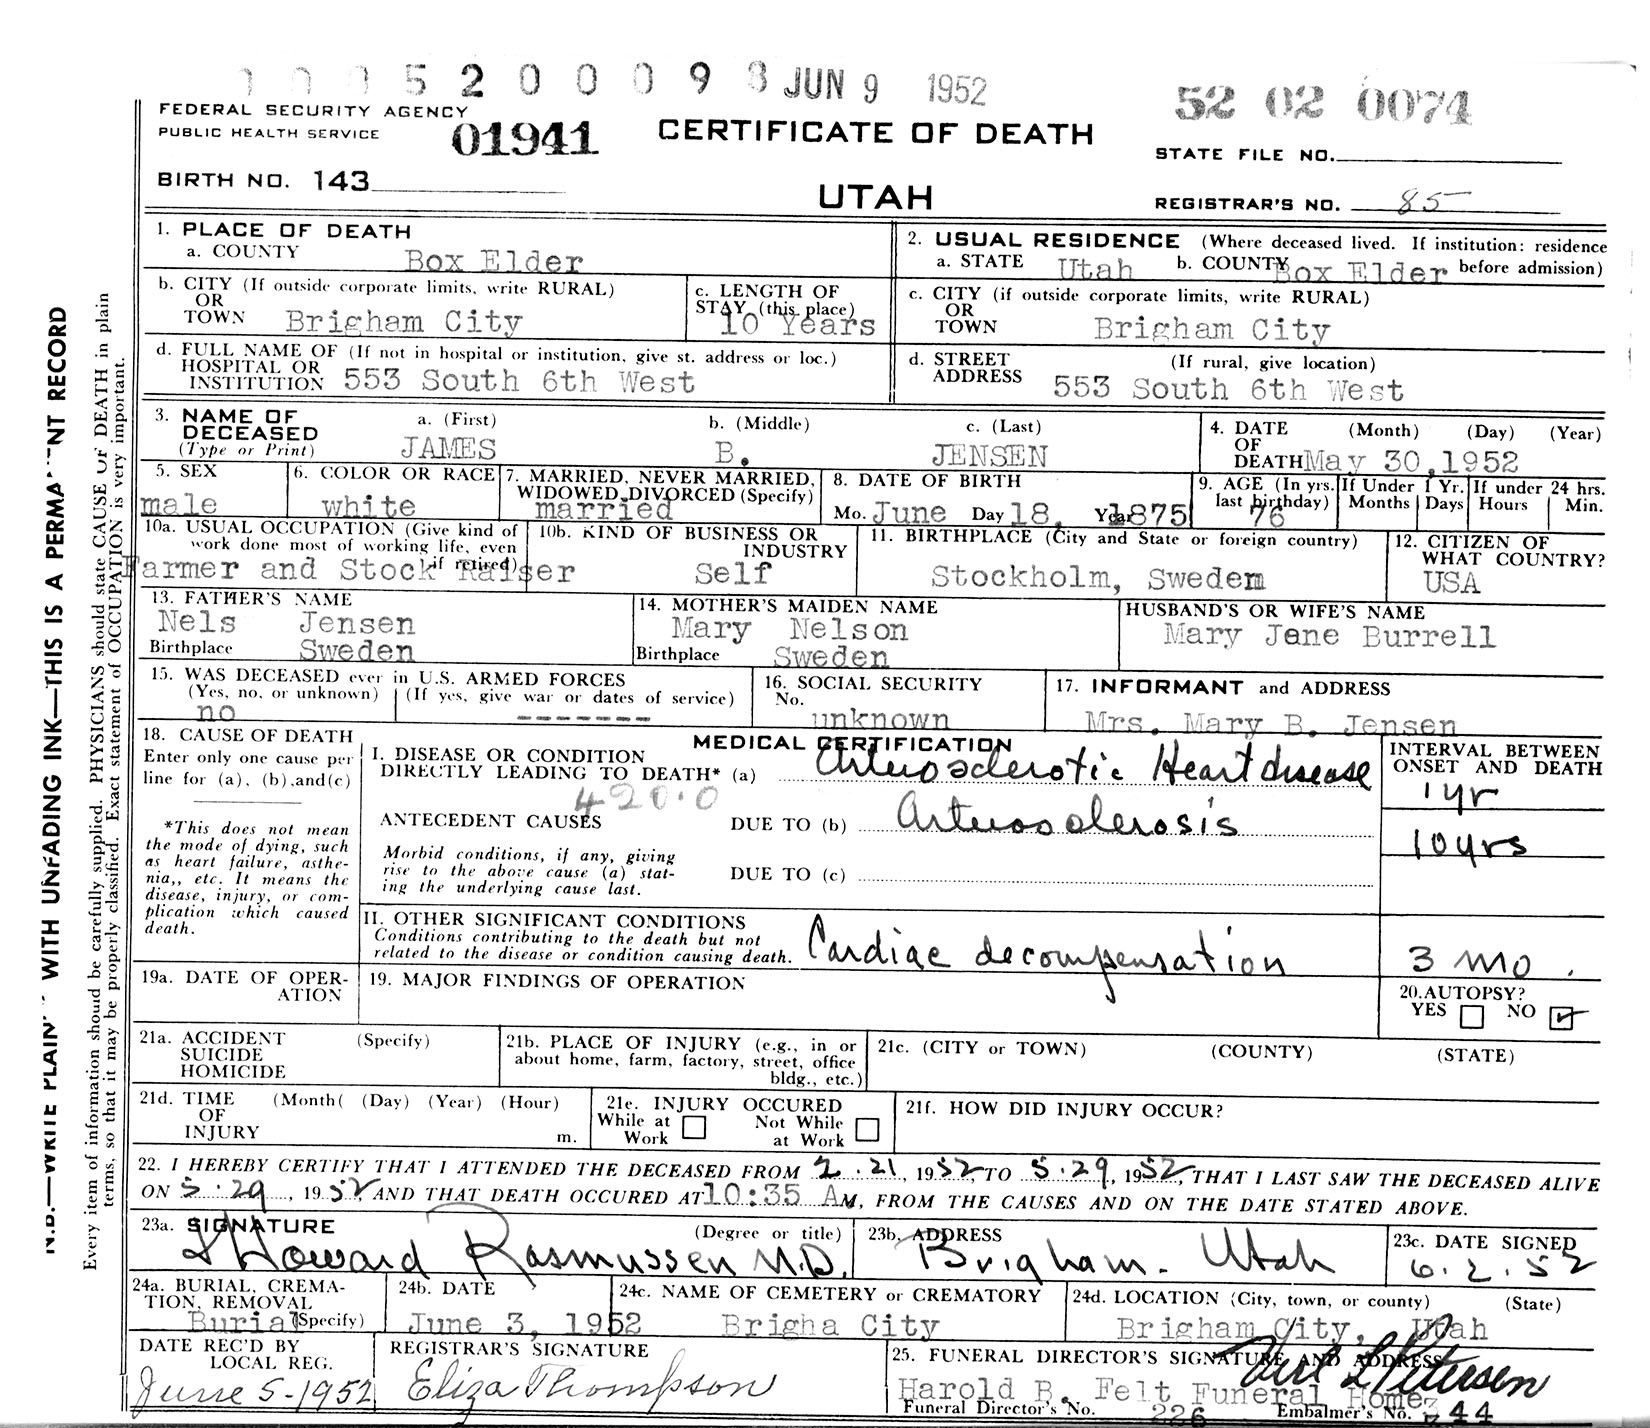 52000 9 JUN 9 1952
52 02 0074
FEDERAL SECURITY AGENCY
PUBLIC HEALTH SERVICE
01941
CERTIFICATE OF DEATH
STATE FILE NO.
BIRTH NO. 143
UTAH
REGISTRAR'S NO. 85
N.B.—WRITE PLAIN WITH UNFADING INK—THIS IS A PERMA NT RECORD
Every item of information shoud be carefully supplied. PHYSICIANS should state CAUSE OF DEATH in plain
terms, so that it may be properly classified. Exact statement of OCCUPATION is very important.
1. PLACE OF DEATH
a. COUNTY Box Elder
2. USUAL RESIDENCE (Where deceased lived. If institution: residence
a. STATE Utah b. COUNTY Box Elder before admission)
b. CITY (If outside corporate limits, write RURAL)
OR
TOWN Brigham City
c. LENGTH OF
STAY (this place)
10 Years
c. CITY (if outside corporate limits, write RURAL)
OR
TOWN Brigham City
d. FULL NAME OF (If not in hospital or institution, give st. address or loc.)
HOSPITAL OR
INSTITUTION 553 South 6th West
d. STREET (If rural, give location)
ADDRESS 553 South 6th West
3. NAME OF DECEASED
(Type or Print)
a. (First) b. (Middle) c. (Last)
JAMES B. JENSEN
4. DATE (Month) (Day) (Year)
OF
DEATH May 30, 1952
5. SEX
male
6. COLOR OR RACE
white
7. MARRIED, NEVER MARRIED,
WIDOWED, DIVORCED (Specify)
married
8. DATE OF BIRTH
Mo. June Day 18, Year 1875
9. AGE (In yrs. last birthday)
76
If Under 1 Yr.
Months Days
If under 24 hrs.
Hours Min.
10a. USUAL OCCUPATION (Give kind of
work done most of working life, even
if retired)
Farmer and Stock Raiser
10b. KIND OF BUSINESS OR
INDUSTRY
Self
11. BIRTHPLACE (City and State or foreign country)
Stockholm, Sweden
12. CITIZEN OF
WHAT COUNTRY?
USA
13. FATHER'S NAME
Nels Jensen
Birthplace Sweden
14. MOTHER'S MAIDEN NAME
Mary Nelson
Birthplace Sweden
HUSBAND'S OR WIFE'S NAME
Mary Jane Burrell
15. WAS DECEASED ever in U.S. ARMED FORCES
(Yes, no, or unknown) (If yes, give war or dates of service)
no -------
16. SOCIAL SECURITY
No.
unknown
17. INFORMANT and ADDRESS
Mrs. Mary B. Jensen
18. CAUSE OF DEATH
Enter only one cause per
line for (a), (b),and(c)
*This does not mean
the mode of dying, such
as heart failure, asthe-
nia,, etc. It means the
disease, injury, or com-
plication which caused
death.
MEDICAL CERTIFICATION
I. DISEASE OR CONDITION
DIRECTLY LEADING TO DEATH* (a) Arteriosclerotic Heart disease
420.0
ANTECEDENT CAUSES DUE TO (b) Arteriosclerosis
Morbid conditions, if any, giving
rise to the above cause (a) stat-
ing the underlying cause last.
DUE TO (c)
INTERVAL BETWEEN
ONSET AND DEATH
1 yr
10 yrs
II. OTHER SIGNIFICANT CONDITIONS
Conditions contributing to the death but not
related to the disease or condition causing death.
Cardiac decompensation
3 mo.
19a. DATE OF OPER-
ATION
19. MAJOR FINDINGS OF OPERATION
20.AUTOPSY?
YES NO
21a. ACCIDENT (Specify)
SUICIDE
HOMICIDE
21b. PLACE OF INJURY (e.g., in or
about home, farm, factory, street, office
bldg., etc.)
21c. (CITY or TOWN) (COUNTY) (STATE)
21d. TIME (Month( (Day) (Year) (Hour)
OF
INJURY m.
21e. INJURY OCCURED
While at Work Not While at Work
21f. HOW DID INJURY OCCUR?
22. I HEREBY CERTIFY THAT I ATTENDED THE DECEASED FROM 2.21, 1952, TO 5.29, 1952, THAT I LAST SAW THE DECEASED ALIVE
ON 5.29, 1952 AND THAT DEATH OCCURED AT 10:35 AM, FROM THE CAUSES AND ON THE DATE STATED ABOVE.
23a. SIGNATURE (Degree or title)
Howard Rasmussen M.D.
23b. ADDRESS
Brigham. Utah
23c. DATE SIGNED
6.2.52
24a. BURIAL, CREMA-
TION, REMOVAL
(Specify)
Burial
24b. DATE
June 3, 1952
24c. NAME OF CEMETERY or CREMATORY
Brigha City
24d. LOCATION (City, town, or county) (State)
Brigham City, Utah
DATE REC'D BY
LOCAL REG.
June 5-1952
REGISTRAR'S SIGNATURE
Eliza Thompson
25. FUNERAL DIRECTOR'S SIGNATURE AND ADDRESS
Harold B. Felt Funeral Home
Funeral Director's No. 226 Embalmer's No. 344